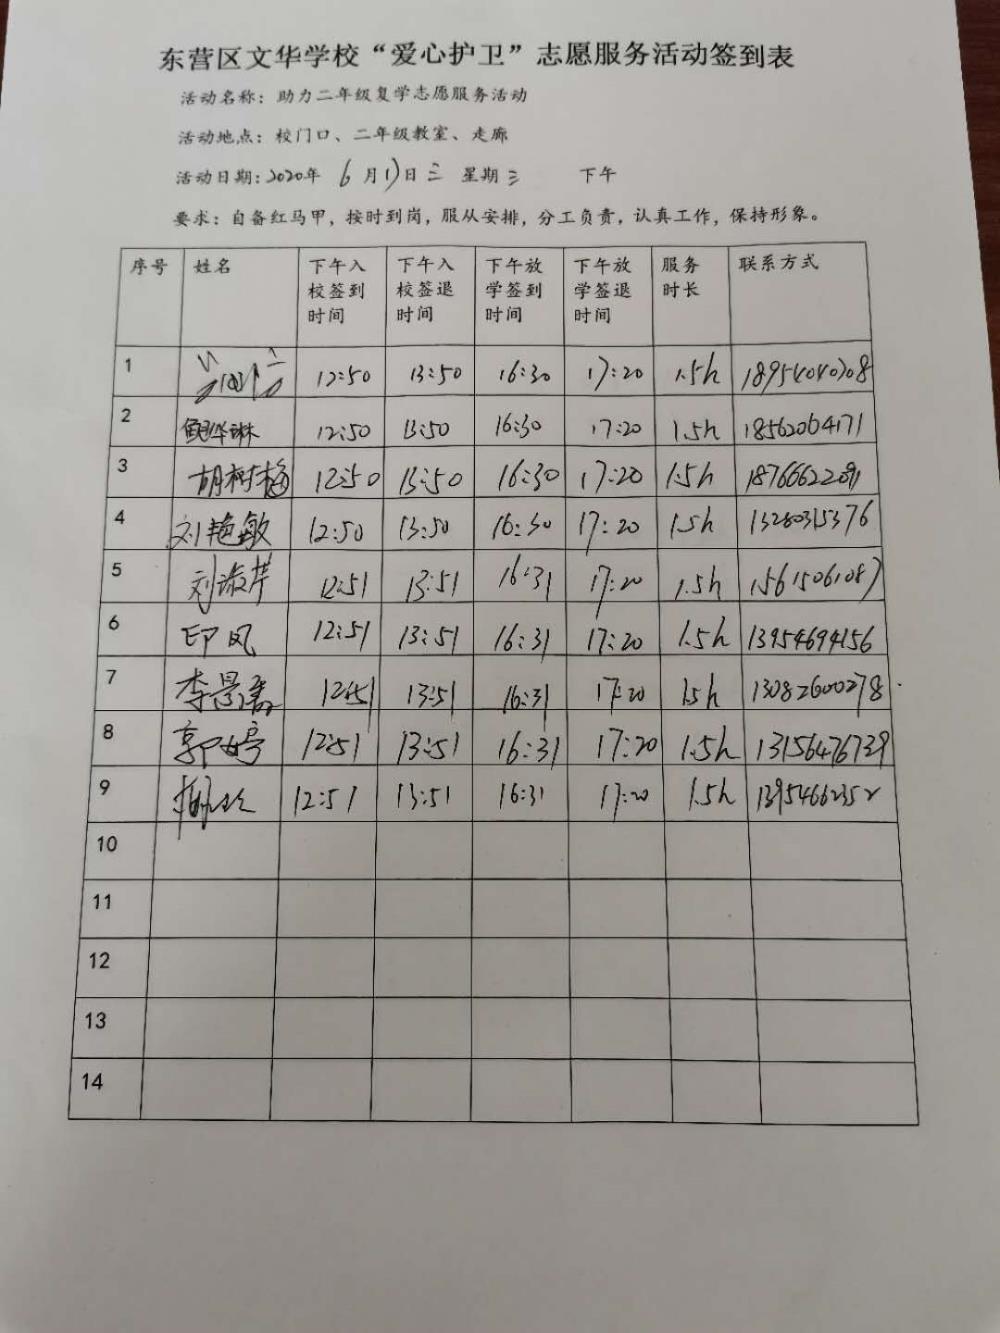 东营区文华学校“爱心护卫”志愿服务活动签到表
活动名称：助力二年级复学志愿服务活动
活动地点：校门口、二年级教室、走廊
活动日期：2020年 6月17日 三 星期三 下午
要求：自备红马甲，按时到岗，服从安排，分工负责，认真工作，保持形象。
序号 姓名 下午入校签到时间 下午入校签退时间 下午放学签到时间 下午放学签退时间 服务时长 联系方式
1 12:50 13:50 16:30 17:20 1.5h 18954040208
2 鲍华琳 12:50 13:50 16:30 17:20 1.5h 18562064171
3 胡树梅 12:50 13:50 16:30 17:20 1.5h
4 刘艳敏 12:50 13:50 16:30 17:20 1.5h 13280315376
5 刘淑芹 12:51 13:51 16:31 17:20 1.5h 15615061087
6 印凤 12:51 13:51 16:31 17:20 1.5h 13954694156
7 12:51 13:51 16:31 17:20 1.5h 13082600278
8 郭婷 12:51 13:51 16:31 17:20 1.5h 13156476739
9 12:51 13:51 16:31 17:20 1.5h 13954662352
10
11
12
13
14